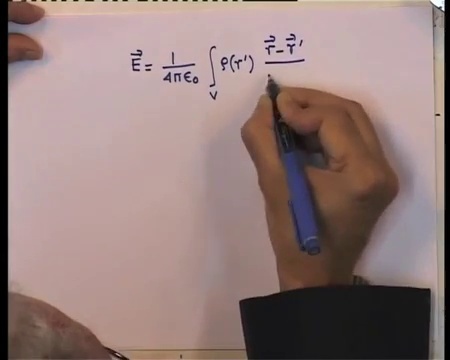 \vec{E} = \frac{1}{4\pi\epsilon_0} \int_V \rho(r') \frac{\vec{r} - \vec{r}'}{}